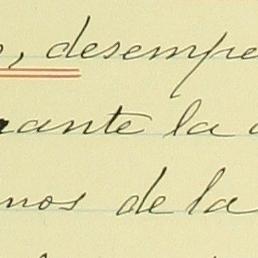 , desempe
rante la
nos de la